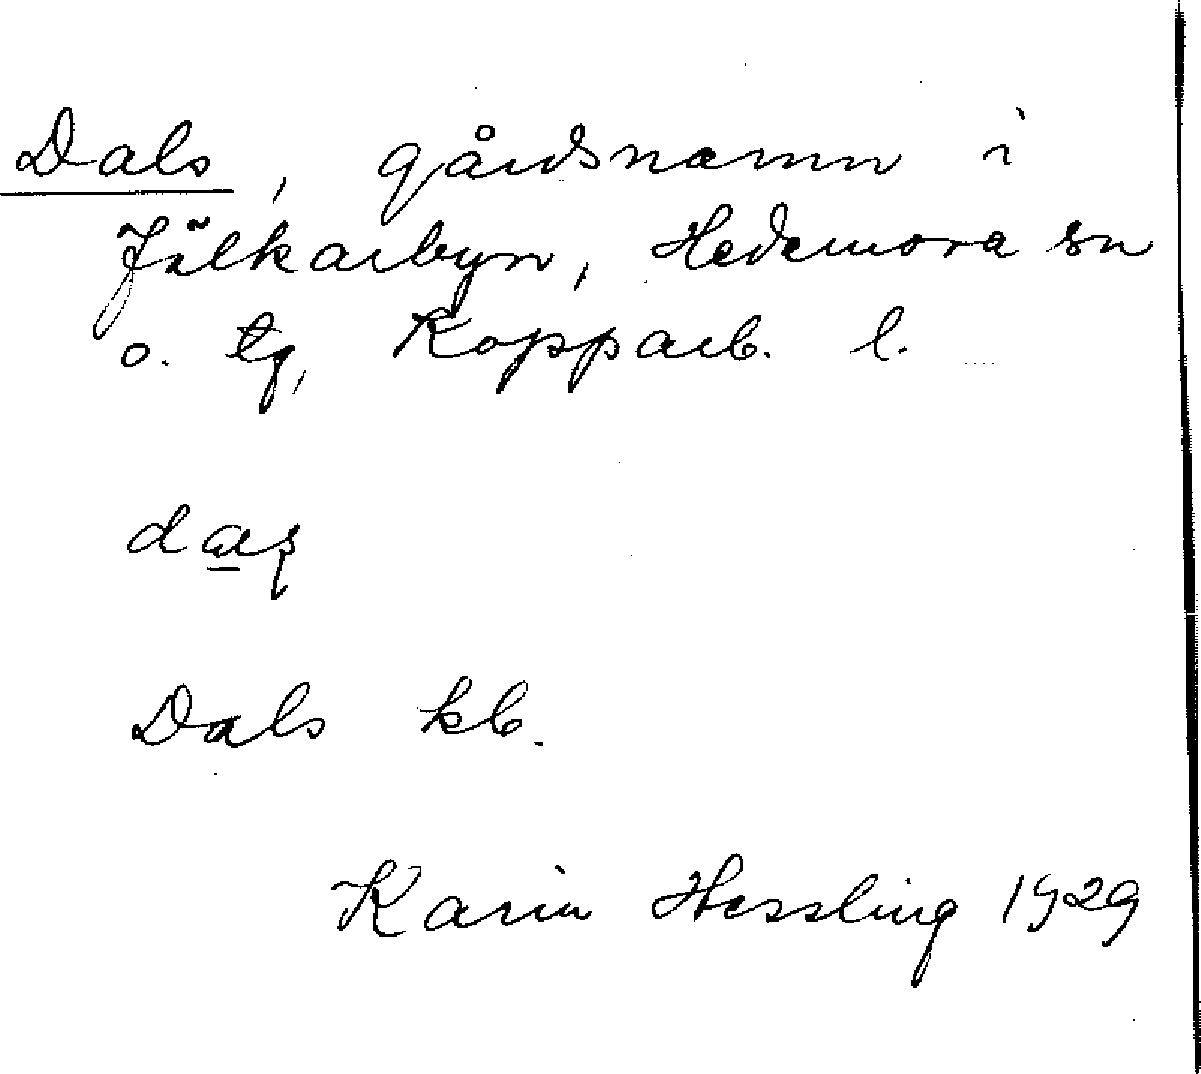 Dals, gårdsnamn i
Jälkarbyn, Hedemora sn
o. tg, Kopparb. l.
Dals kb.
Karin Hessling 1929